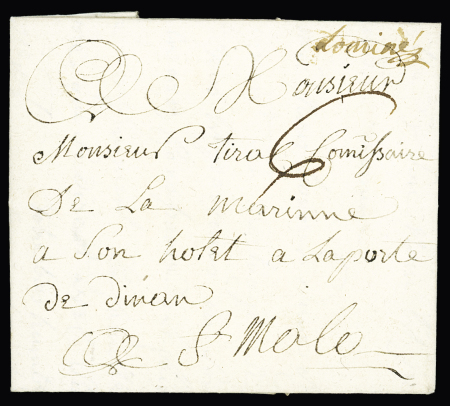 Lominé
Monsieur
6
Monsieur tirol Comissaire
De La marinne
a Son hotel a Laporte
de dinan
a St Malo